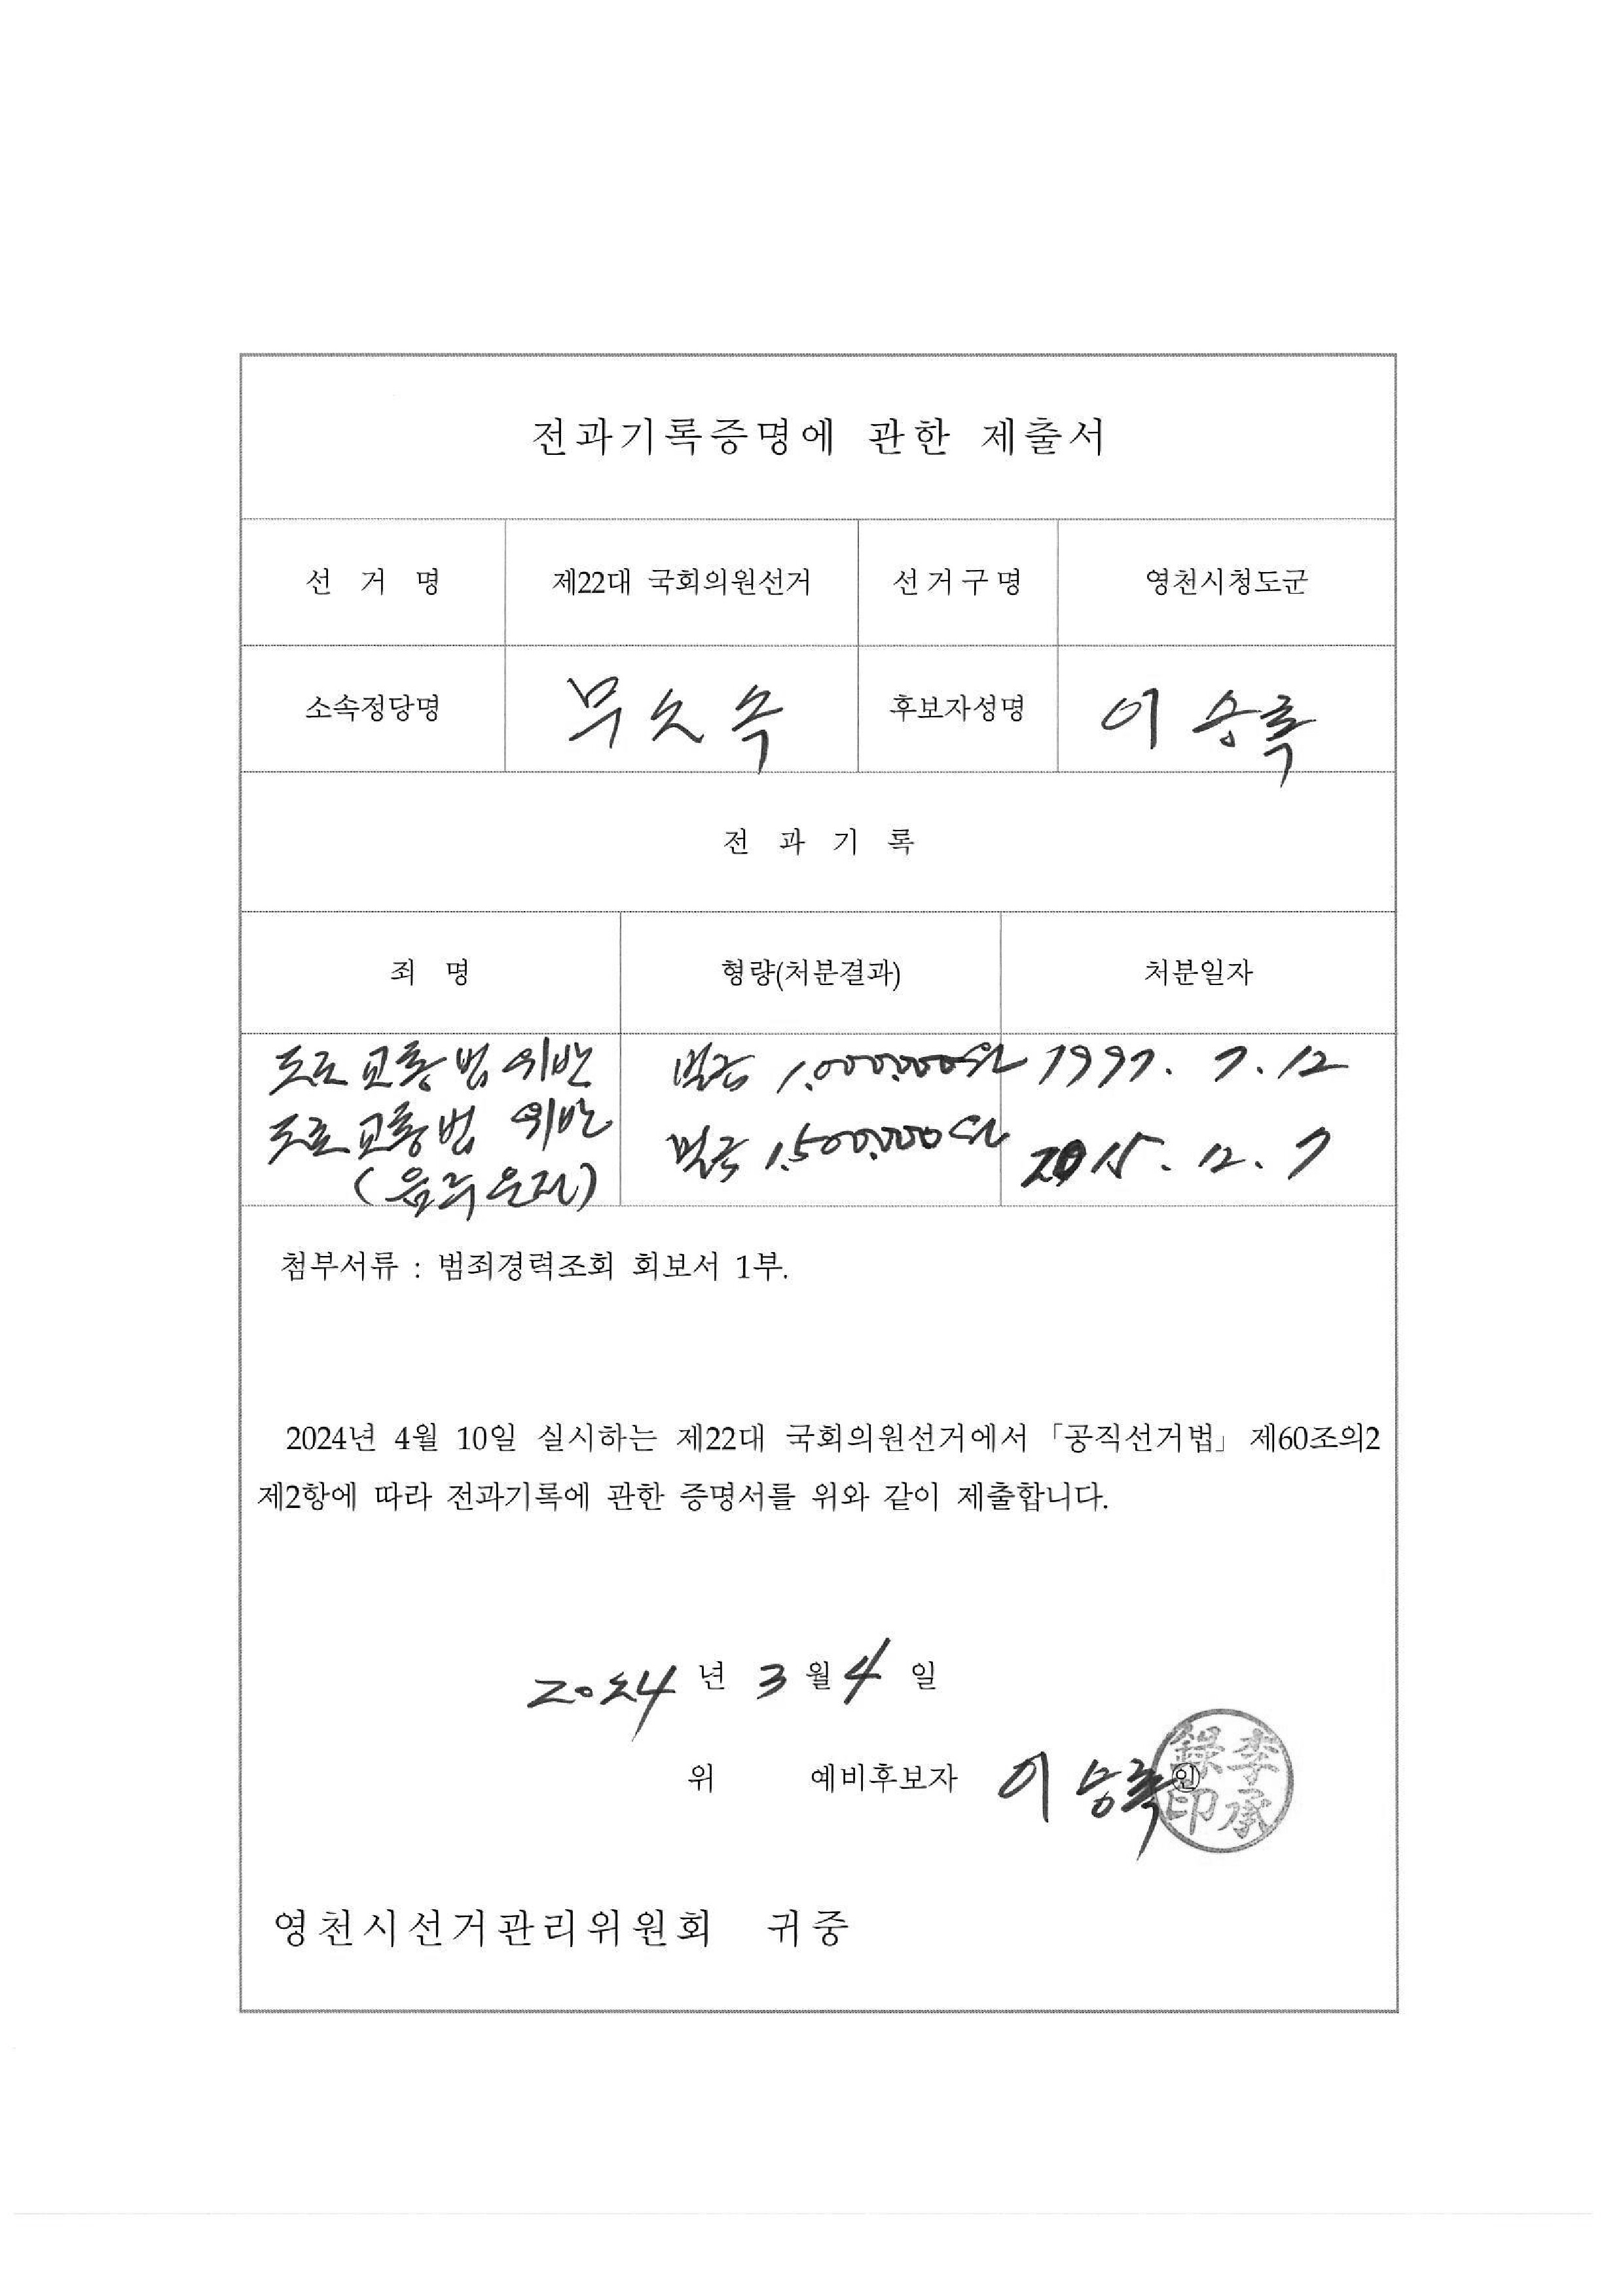 전과기록증명에 관한 제출서
선 거 명 제22대 국회의원선거 선거구명 영천시청도군
소속정당명 무소속 후보자성명 이승록
전 과 기 록
죄 명 형량(처분결과) 처분일자
도로교통법위반 벌금 1,000,000원 1997. 7. 12
도로교통법 위반 벌금 1,500,000원 2015. 12. 7
(음주운전)
첨부서류 : 범죄경력조회 회보서 1부.
2024년 4월 10일 실시하는 제22대 국회의원선거에서 「공직선거법」 제60조의2
제2항에 따라 전과기록에 관한 증명서를 위와 같이 제출합니다.
2024 년 3 월 4 일
위 예비후보자 이승록 인
李承錄印
영천시선거관리위원회 귀중